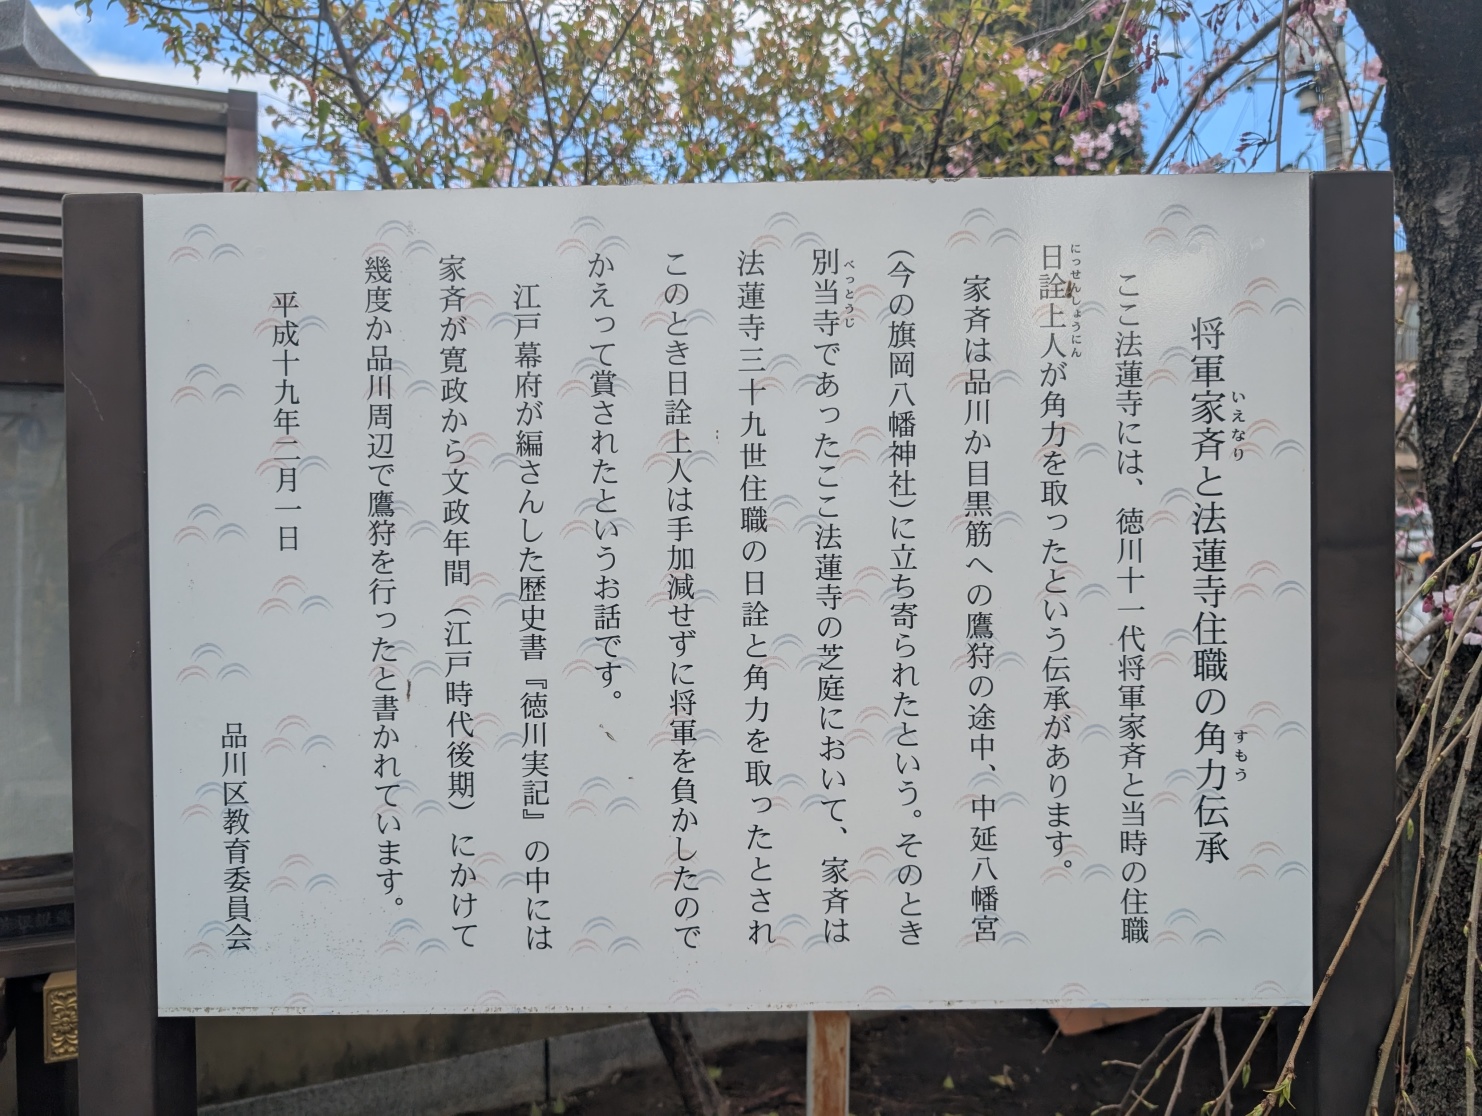 将軍家斉と法蓮寺住職の角力伝承
いえなり
すもう
ここ法蓮寺には、徳川十一代将軍家斉と当時の住職
日詮上人が角力を取ったという伝承があります。
にっせんしょうにん
家斉は品川か目黒筋への鷹狩の途中、中延八幡宮
（今の旗岡八幡神社）に立ち寄られたという。そのとき
別当寺であったここ法蓮寺の芝庭において、家斉は
べっとうじ
法蓮寺三十九世住職の日詮と角力を取ったとされ
このとき日詮上人は手加減せずに将軍を負かしたので
かえって賞されたというお話です。
江戸幕府が編さんした歴史書『徳川実記』の中には
家斉が寛政から文政年間（江戸時代後期）にかけて
幾度か品川周辺で鷹狩を行ったと書かれています。
平成十九年二月一日
品川区教育委員会